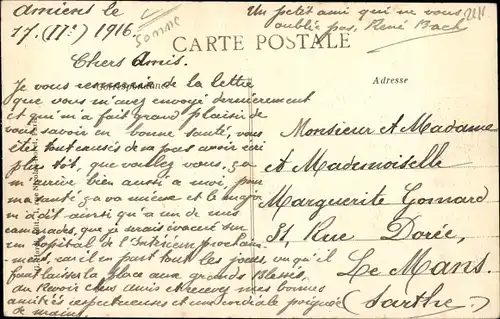 Amiens le
17. (II) 1916
Somme
Un petit ami qui ne vous
oublie pas, René Bach
CARTE POSTALE
Chers Amis.
Correspondance
Adresse
Je vous remercie de la lettre
que vous m'avez envoyé dernièrement
et qui m'a fait grand plaisir de
vous savoir en bonne santé, vous
ête tout excusés de pas avoir écri
plus tôt, que voulez vous, ça
m'arrive bien aussi a moi, pour
ma santé, ça va mieux et le major
m'a dit ainsi qu'a un de mes
camarades, que je serais évacué sur
un hopital de l'Intérieur prochaine
ment, car il en part tout les jours, vu qu'il
faut laisser la place aux grands Blessés,
au Revoir chers amis et recevez mes bonnes
amitiés respectueuses et une cordiale poignée
de mains
Monsieur et Madame
et Mademoiselle
Marguerite Goinard
81, Rue Dorée,
Le Mans.
(Sarthe)